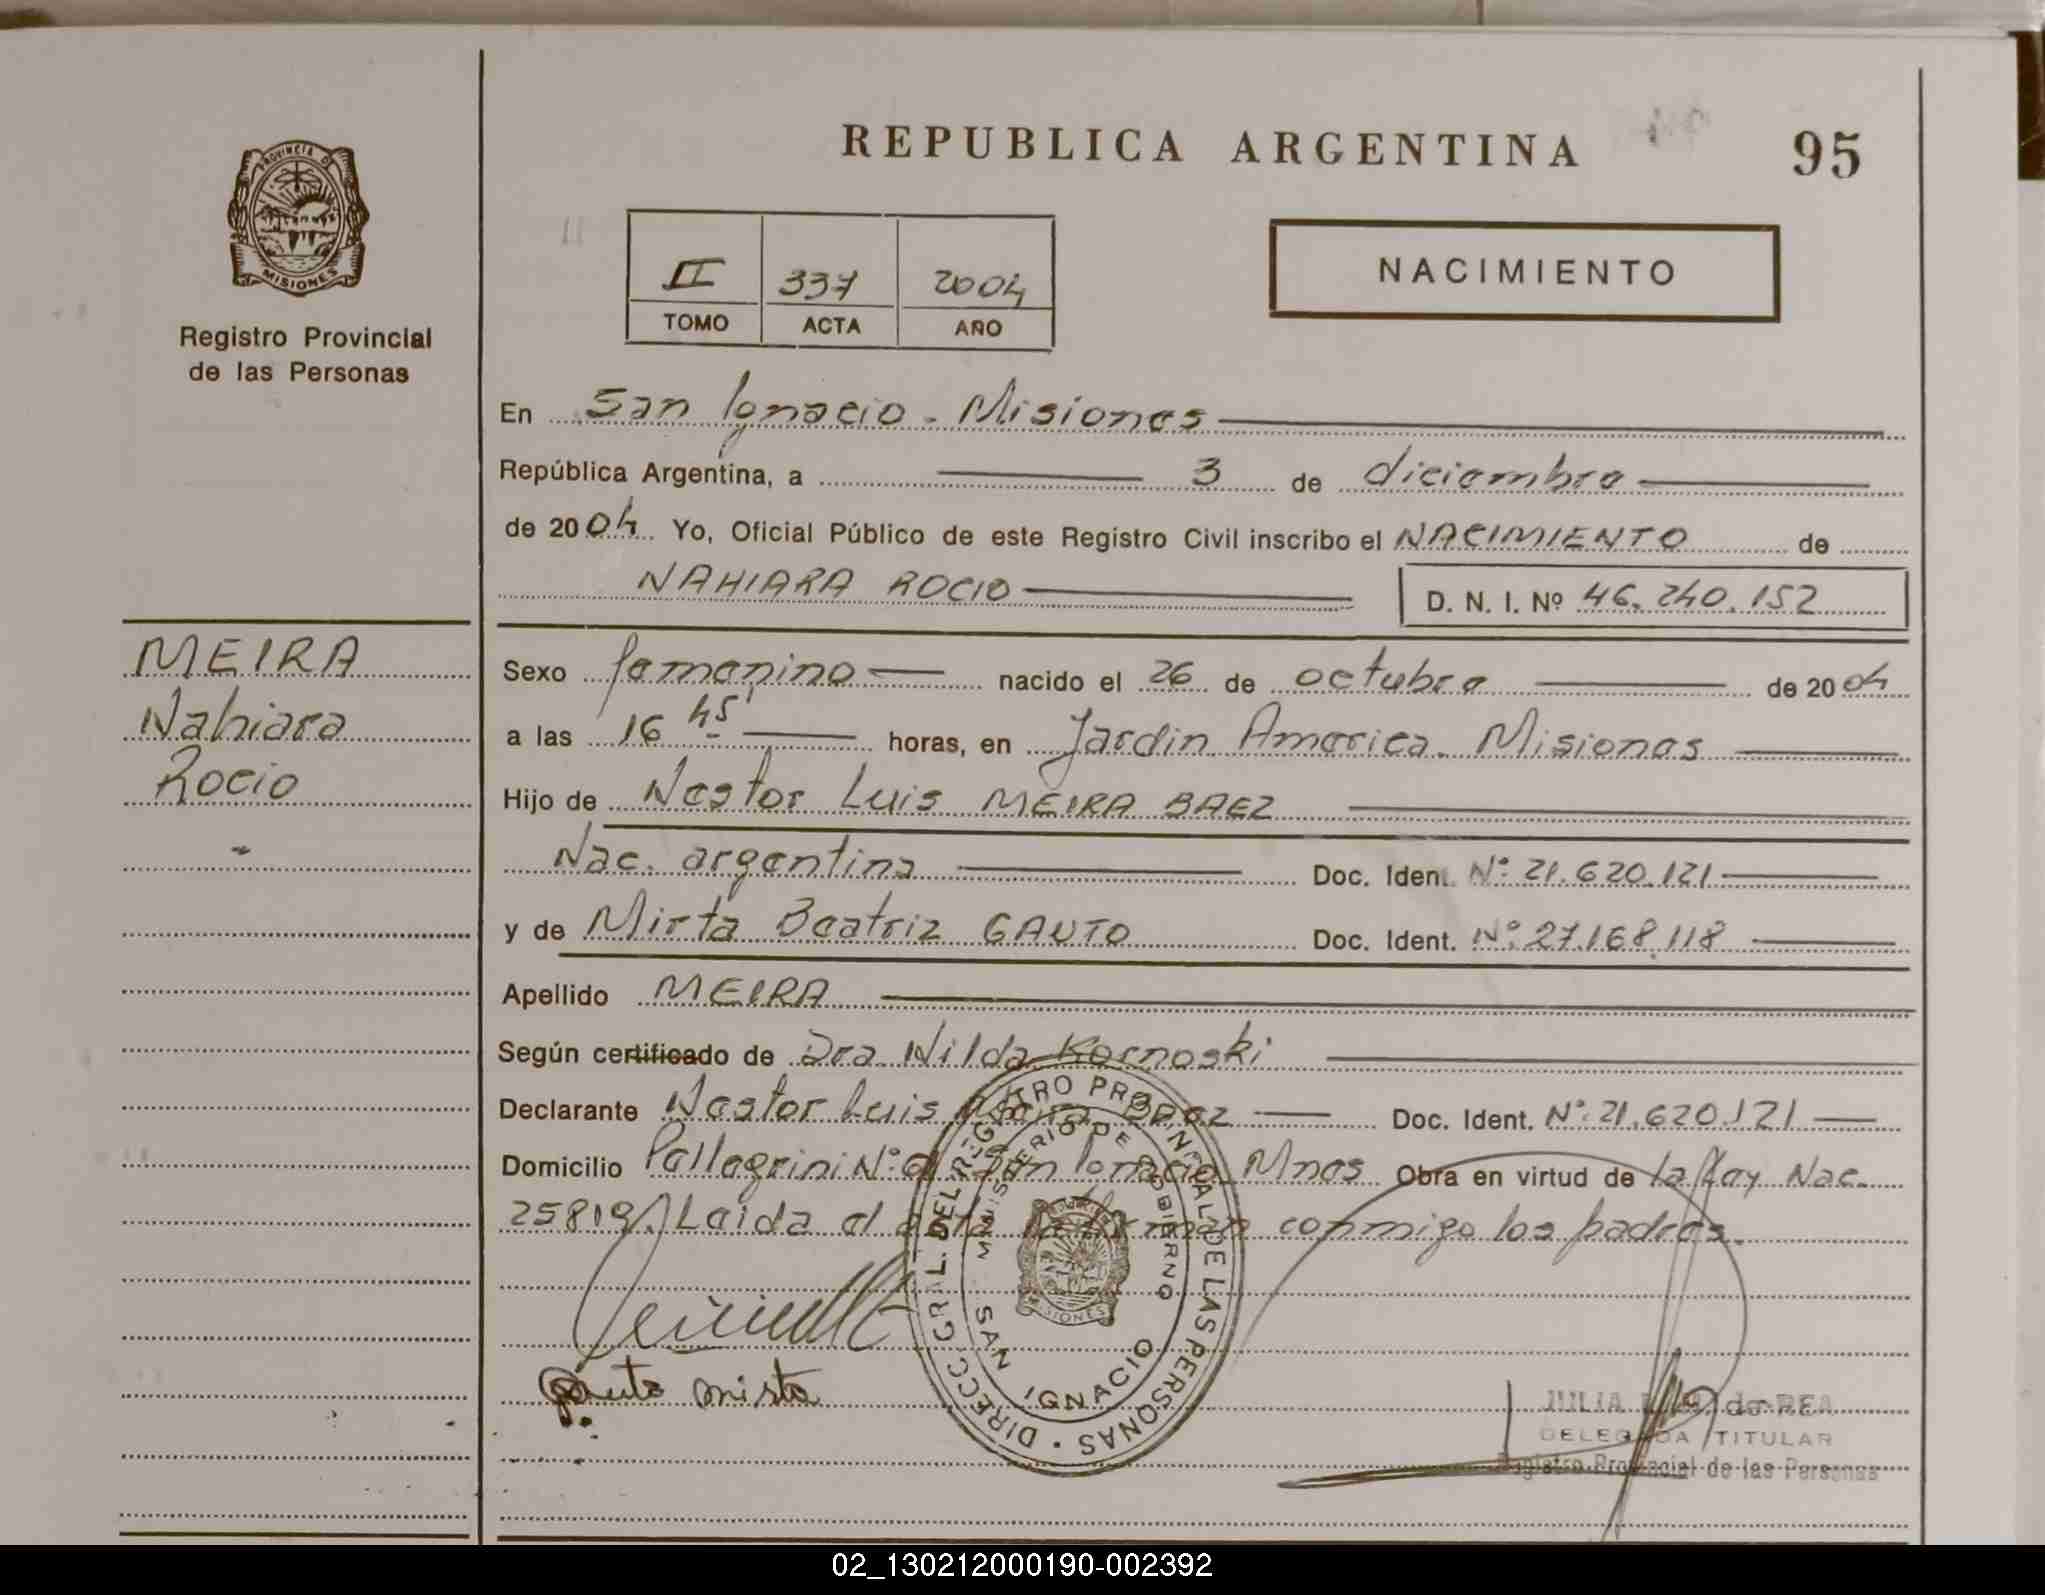 REPUBLICA ARGENTINA
95
PROVINCIA DE
MISIONES
Registro Provincial
de las Personas
II 337 2004
TOMO ACTA AÑO
NACIMIENTO
En San Ignacio - Misiones
República Argentina, a 3 de diciembre
de 2004 Yo, Oficial Público de este Registro Civil inscribo el NACIMIENTO de
NAHIARA ROCIO D. N. I. Nº 46.240.152
MEIRA
Nahiara
Rocio
Sexo femenino nacido el 26 de octubre de 2004
a las 16 45' horas, en Jardin America. Misiones
Hijo de Nestor Luis MEIRA BAEZ
Nac. argentina Doc. Ident. Nº: 21.620.121
y de Mirta Beatriz GAUTO Doc. Ident. Nº: 27.168.118
Apellido MEIRA
Según certificado de Dra. Nilda Kornoski
Declarante Nestor Luis Meira Baez Doc. Ident. Nº: 21.620.121
Domicilio Pellegrini Nº: San Ignacio Mnes Obra en virtud de la Ley Nac.
25819. Leida el acta la firman conmigo los padres.
Gauto mirta
DIRECC. GRAL. DEL REGISTRO PROVINCIAL DE LAS PERSONAS
MINISTERIO DE GOBIERNO
SAN IGNACIO
MISIONES
JULIA de REA
DELEGADA TITULAR
Registro Provincial de las Personas
02_130212000190-002392